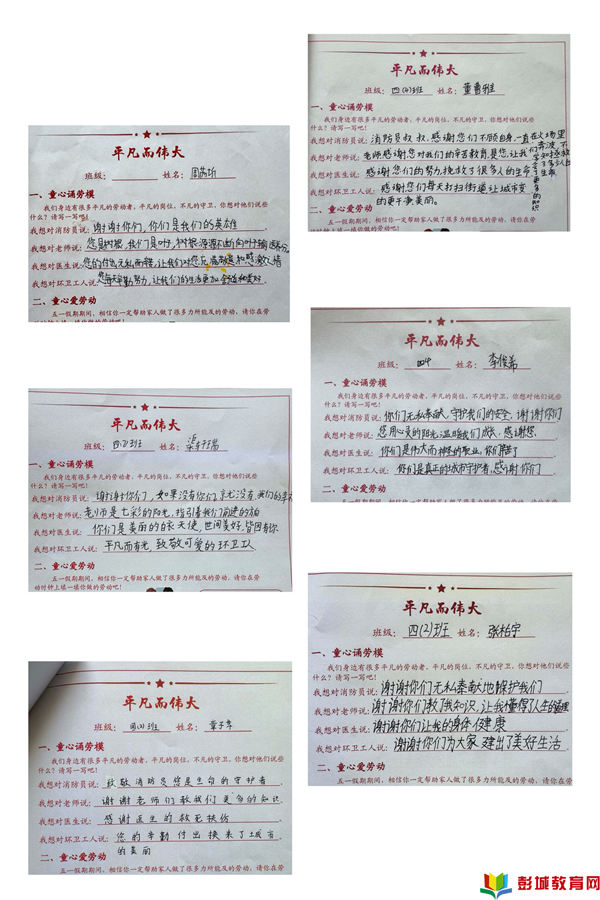 平凡而伟大
班级: 姓名:周苏昕
一、童心诵劳模
我们身边有很多平凡的劳动者,平凡的岗位,不凡的守卫,你想对他们说些
什么?请写一写吧!
我想对消防员说:谢谢你们,你们是我们的英雄
我想对老师说:您是树根,我们是叶,树根源源不断向叶输送养分。
我想对医生说:您的付出无私而
我想对环卫工人说:每天辛勤努力,让我们的生活更加
二、童心爱劳动
五一假期期间,相信你一定帮助家人做了很多力所能及的劳动,请你在劳
动时钟上填一填你做的劳动吧!
平凡而伟大
班级:四(2)班 姓名:梁轩瑞
一、童心诵劳模
我们身边有很多平凡的劳动者,平凡的岗位,不凡的守卫,你想对他们说些
什么?请写一写吧!
我想对消防员说:谢谢你们,如果没有你们
我想对老师说:老师是七彩的阳光,指引着我们前进的路
我想对医生说:你们是美丽的白衣天使,世间美好,皆因有你
我想对环卫工人说:平凡而有光,致敬可爱的环卫工
二、童心爱劳动
五一假期期间,相信你一定帮助家人做了很多力所能及的劳动,请你在劳
动时钟上填一填你做的劳动吧!
平凡而伟大
班级:四(2)班 姓名:章子
一、童心诵劳模
我们身边有很多平凡的劳动者,平凡的岗位,不凡的守卫,你想对他们说些
什么?请写一写吧!
我想对消防员说:致敬消防员您是生命的守护者
我想对老师说:谢谢老师们教我们更多的知识
我想对医生说:感谢医生的救死扶伤
我想对环卫工人说:您的辛勤付出换来了城市
的美丽
二、童心爱劳动
五一假期期间,相信你一定帮助家人做了很多力所能及的劳动,请你在劳
平凡而伟大
班级:四(4)班 姓名:董雷雅
一、童心诵劳模
我们身边有很多平凡的劳动者,平凡的岗位,不凡的守卫,你想对他们说些
什么?请写一写吧!
我想对消防员说:消防员叔叔,感谢你们不顾自身,一直在火场里奔波,不知拯救了多少人
我想对老师说:老师感谢您对我们的辛苦教育,是您,让我们学会了更多的知识
我想对医生说:感谢你们的努力,挽救了很多人的生命
我想对环卫工人说:感谢你们每天打扫街道让城市变
的更干净美丽。
平凡而伟大
班级:四4 姓名:李俊希
一、童心诵劳模
我们身边有很多平凡的劳动者,平凡的岗位,不凡的守卫,你想对他们说些
什么?请写一写吧!
我想对消防员说:你们无私奉献,守护我们的安全,谢谢你们
我想对老师说:您用心灵的阳光,温暖我们成长,感谢您
我想对医生说:你们是伟大而神圣的职业,你们辛苦了
我想对环卫工人说:你们是真正的城市守护者,感谢你们
二、童心爱劳动
五一假期期间,相信你一定帮助家人做了很多力所能及的劳动,请你在劳
平凡而伟大
班级:四(2)班 姓名:张柏宁
一、童心诵劳模
我们身边有很多平凡的劳动者,平凡的岗位,不凡的守卫,你想对他们说些
什么?请写一写吧!
我想对消防员说:谢谢你们无私奉献地保护我们
我想对老师说:谢谢你们教了我知识,让我懂得了人生的道理
我想对医生说:谢谢你们让我的身体健康
我想对环卫工人说:谢谢你们为大家建出了美好生活
二、童心爱劳动
五一假期期间,相信你一定帮助家人做了很多力所能及的劳动,请你在劳
彭城教育网